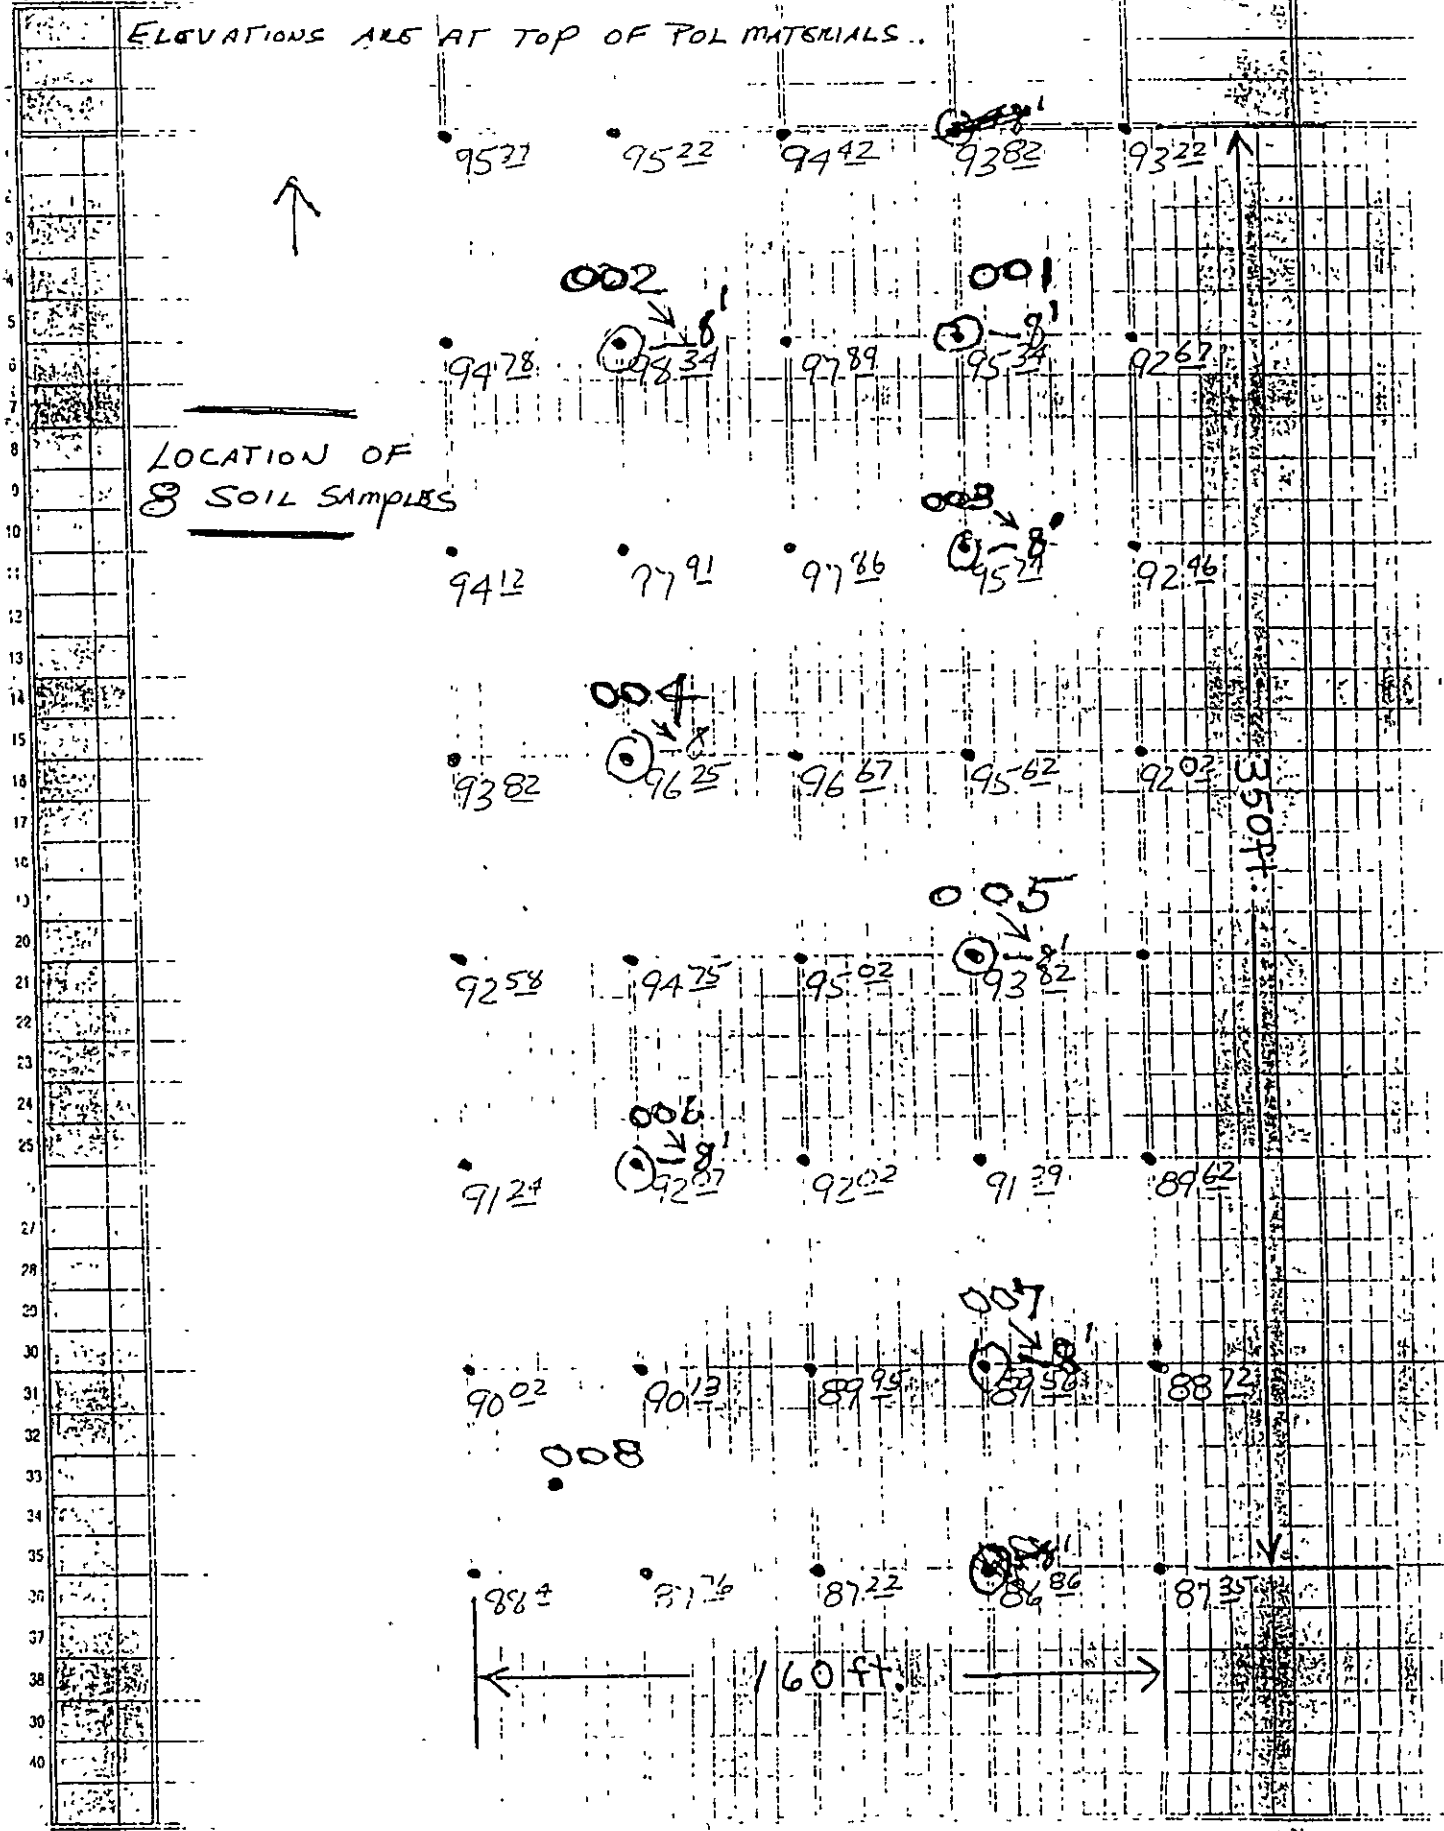 ELEVATIONS ARE AT TOP OF POL MATERIALS.
95 22 94 42 93 82 93 22
002 001
-8' -8'
94 78 98 34 97 89 95 34 92 67
LOCATION OF
8 SOIL SAMPLES
003
-8'
94 12 91 97 86 95 92 46
004
-8
93 82 96 25 96 67 95 62 92 02
350ft.
005
-8'
92 58 94 75 95 02 93 82
006
-8'
91 24 92 07 92 02 91 39 89 62
007
-8'
90 02 90 13 89 95 89 56 88 72
008
88 4 87 76 87 22 86 86 87 35
160 ft.
1
2
3
4
5
6
7
8
9
10
11
12
13
14
15
16
17
20
21
22
23
24
25
27
28
29
30
31
32
33
34
35
36
37
38
39
40